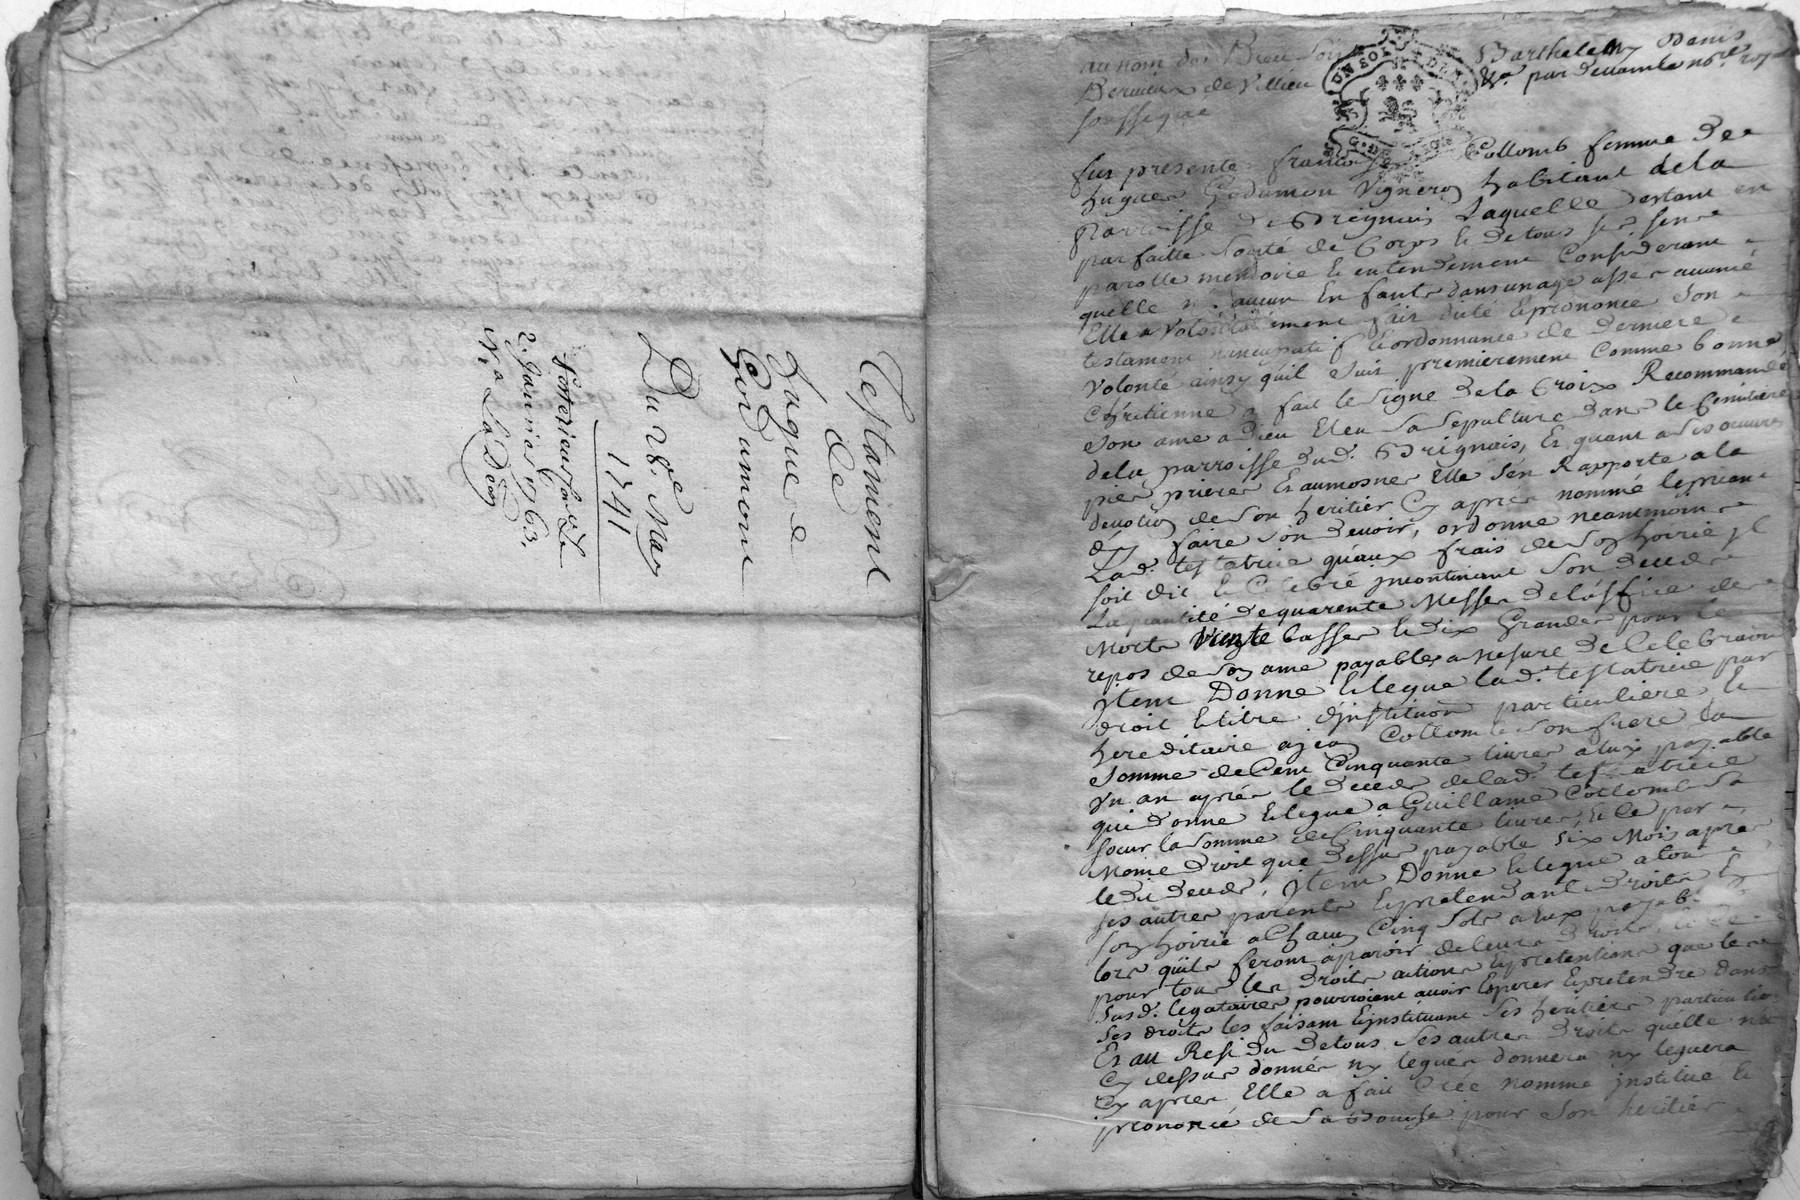 Testament
de
hugue
Gondumont
Du 28e. May
1741
posterieur
2. Janvier 1763.
au nom de Dieu Soit
Barthelemy Denis
Dervieux de Villieu
par devant le no.re royal
soussigné
UN SOL
fut presente francoise Collomb femme de
hugues Godumon Vigneron habitant de la
parroisse de Brignais Laquelle estant en
parfaitte Santé de Corps & de tous ses sens
parolle memoire & entendement Considerant
quelle na aucun Enfants dans un age assez avancé
Elle a Volontairement fait dicté & prononcé Son
testament nuncupatif & ordonnance de derniere
Volonté ainsy quil suit premierement Comme bonne
Chretienne a fait le signe de la Croix Recommandé
son ame a Dieu Eleu Sa Sepulture dans le Cimetiere
de la parroisse dud. Brignais, Et quant a Ses oeuvres
pies prieres Et aumosnes Elle S'en Rapporte a la
devotion de Son heritier Cy apres nommé le priant
d'y faire Son devoir, ordonne neanmoins
Lad. testatrice qu'aux frais de Son hoirie jl
soit dit & Celebré jncontinant Son deceds
La quantité de quarente Messes de l'office des
Morts Trente basses & dix Grandes pour le
repos de Son ame payables a Mesure de Celebration
jtem Donne & legue lad. testatrice par
droit & titre d'jnstitution particuliere &
hereditaire a jean Collomb Son frere la
somme de Cent Cinquante livres a luy payable
un an après le deceds de lad. testatrice
qui donne & legue a Guillame Collomb Sa
soeur la Somme de Cinquante livres, & ce par
Meme droit que dessus payable Six Mois apres
led. deceds, jtem Donne & legue a tous
ses autres parents & pretendants droits En
son hoirie a Chacun Cinq Sols a eux payables
lors quils feront aparoir de leurs droits, & ce
pour tous les droits actions & pretentions que les
susd. legataires pourroient avoir Esperer & pretendre dans
Ses droits les faisant & instituant Ses heritiers particuliers
Et au Residu de tous Ses autres droits quelle n'a
Cy dessus donnés ny legués donnera ny leguera
Cy apres Elle a fait Créé nommé jnstitué &
prononcé de Sa bouche pour Son heritier